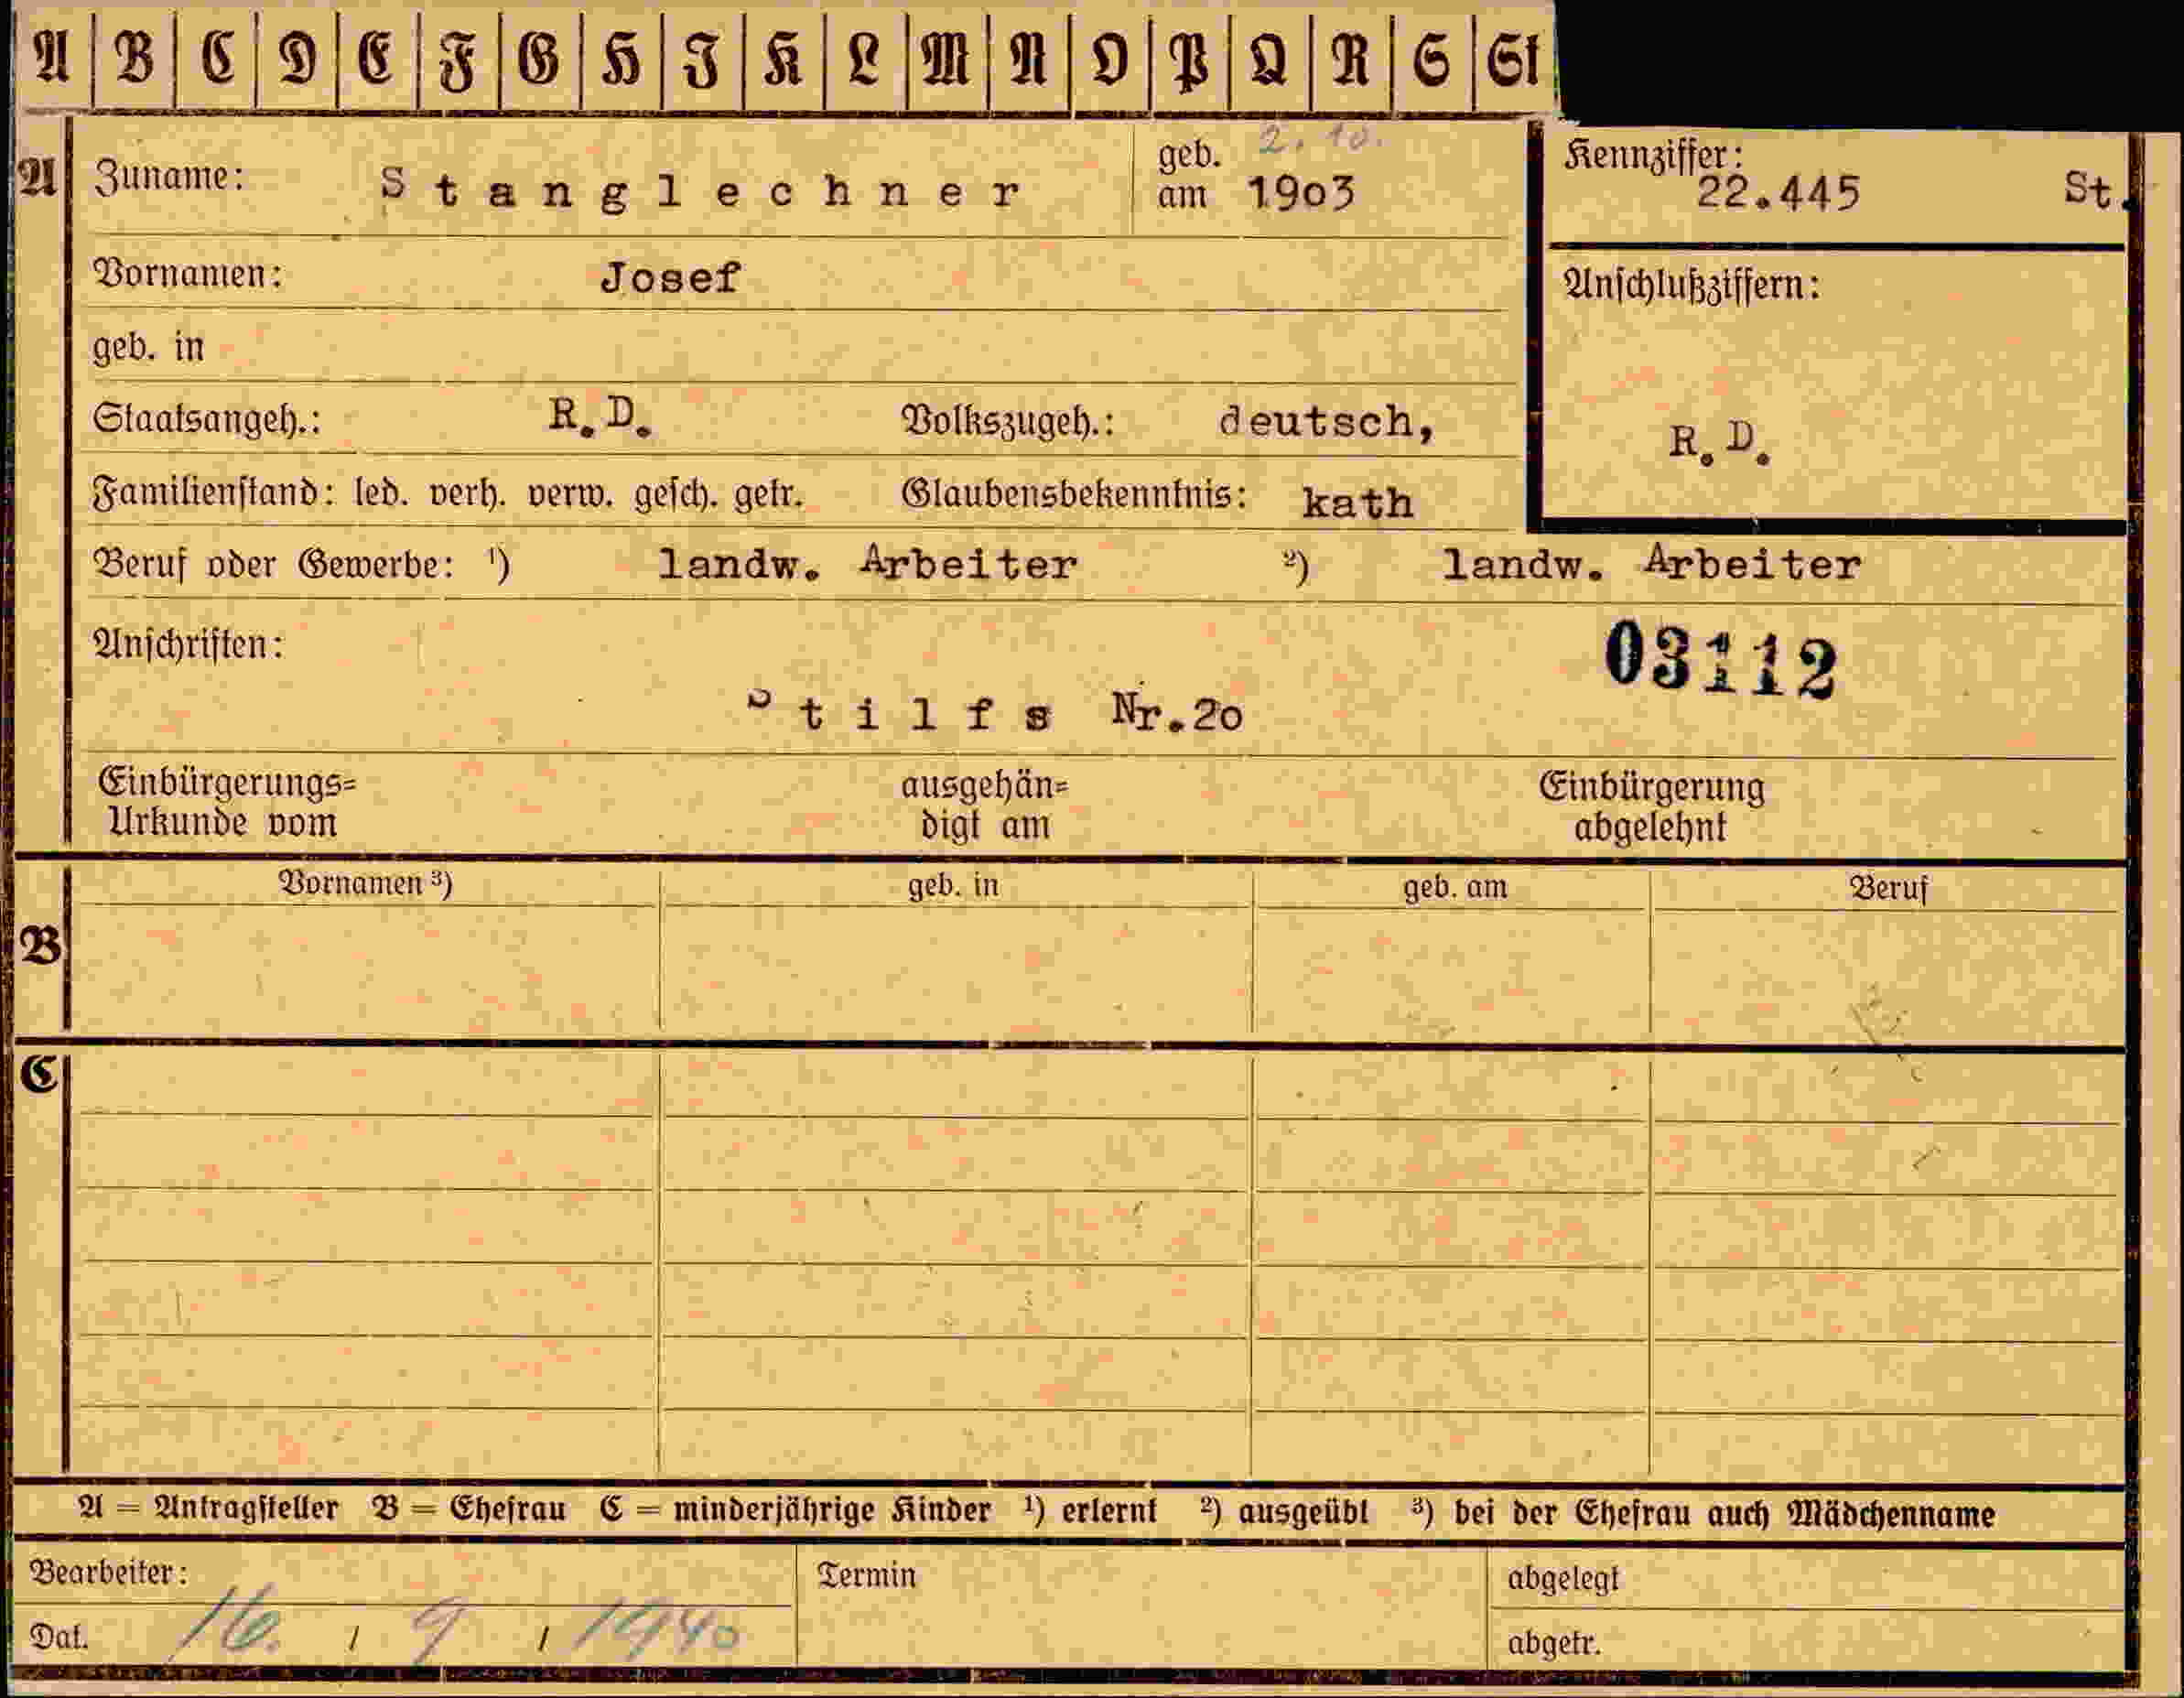 A B C D E F G H I K L M N O P Q R S St
A Zuname: Stanglechner geb. am 2. 10. 1903
Kennziffer: 22.445 St.
Vornamen: Josef
Anschlußziffern:
geb. in
Staatsangeh.: R.D. Volkszugeh.: deutsch,
R.D.
Familienstand: led. verh. verw. gesch. getr. Glaubensbekenntnis: kath
Beruf oder Gewerbe: ¹) landw. Arbeiter ²) landw. Arbeiter
Anschriften:
03112
Stilfs Nr.20
Einbürgerungs= ausgehän= Einbürgerung
Urkunde vom digt am abgelehnt
B Vornamen ³) geb. in geb. am Beruf
C
A = Antragsteller B = Ehefrau C = minderjährige Kinder ¹) erlernt ²) ausgeübt ³) bei der Ehefrau auch Mädchenname
Bearbeiter: Termin abgelegt
Dat. 16. / 9 / 1940 abgetr.